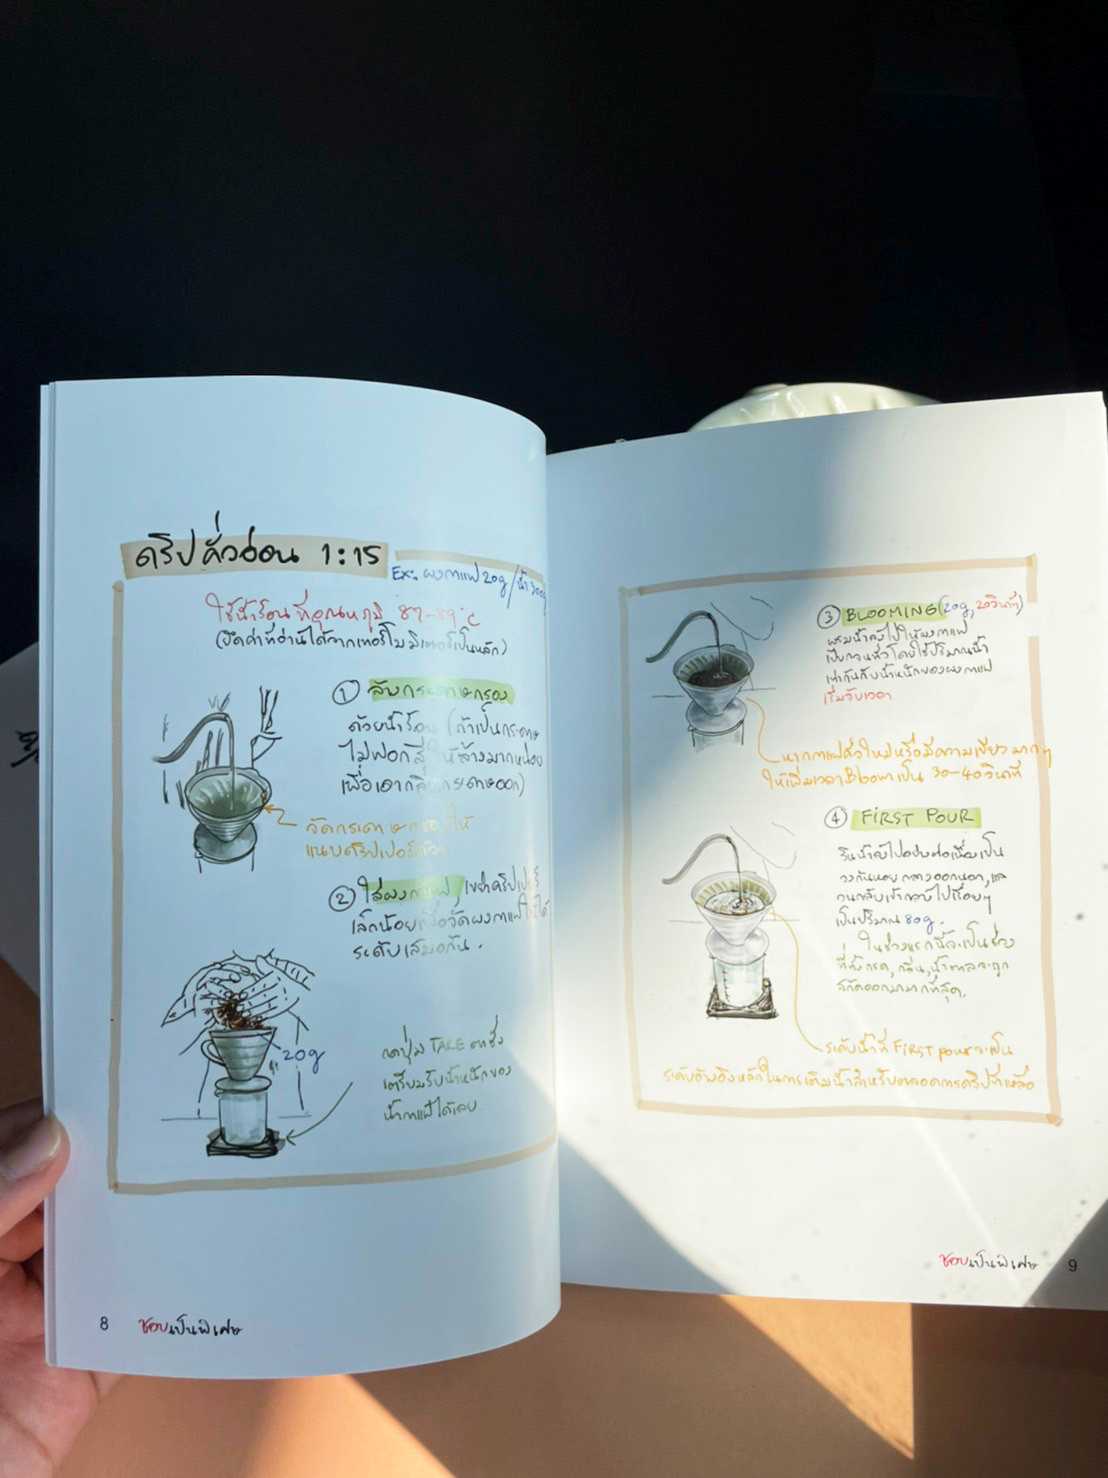 ดริปคั่วอ่อน 1:15
Ex: ผงกาแฟ 20g / น้ำ 300g
ใช้น้ำร้อน ที่อุณหภูมิ 87-89°C
(ยึดค่าที่อ่านได้จากเทอร์โมมิเตอร์เป็นหลัก)
① ล้างกระดาษกรอง
ด้วยน้ำร้อน (ถ้าเป็นกระดาษ
ไม่ฟอกสี ให้ล้างมากหน่อย
เพื่อเอากลิ่นกระดาษออก)
จัดกระดาษกรองให้
แนบดริปเปอร์
② ใส่ผงกาแฟ, เขย่าดริปเปอร์
เล็กน้อยเพื่อจัดผงกาแฟให้ได้
ระดับเสมอกัน.
20g
กดปุ่ม TARE ตาชั่ง
เตรียมรับน้ำหนักของ
น้ำกาแฟได้เลย
8 ชอบเป็นพิเศษ
③ BLOOMING (20g, 20วินาที)
พรมน้ำลงไปให้ผงกาแฟ
เปียกจนทั่วโดยใช้ปริมาณน้ำ
เท่ากันกับน้ำหนักของผงกาแฟ
เริ่มจับเวลา
หากกาแฟคั่วใหม่หรือมีความเขียวมากๆ
ให้เพิ่มเวลา Bloom เป็น 30-40 วินาที
④ FIRST POUR
รินน้ำลงไปอย่างต่อเนื่องเป็น
วงก้นหอย กลางออกนอก, และ
วนกลับเข้ากลางไปเรื่อยๆ
เป็นปริมาณ 80g.
ในช่วงแรกนี้จะเป็นช่วง
ที่ทั้งกรด, กลิ่น, น้ำตาลจะถูก
สกัดออกมามากที่สุด.
ระดับน้ำที่ FIRST pour จะเป็น
ระดับอ้างอิงหลักในการเติมน้ำสำหรับตลอดการดริปที่เหลือ
ชอบเป็นพิเศษ 9